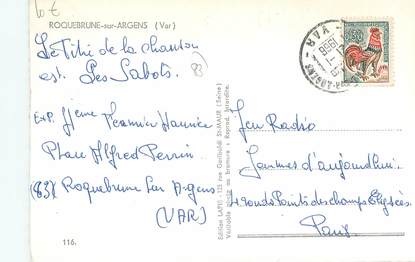 10 €
ROQUEBRUNE-sur-ARGENS (Var)
Le Titre de la chanson
est. Les Sabots.
83
Exp. Mme
Place Alfred Perrin
(83) Roquebrune Sur Argens
(VAR)
116.
Edition LAPIE - 125 rue Garibaldi St-MAUR (Seine)
Véritable au Bromure - Reprod. Interdite.
VAR
1966
Jeu Radio
Jeunes d'aujourd'hui
4 ronds Points des champs Elysées
Paris.